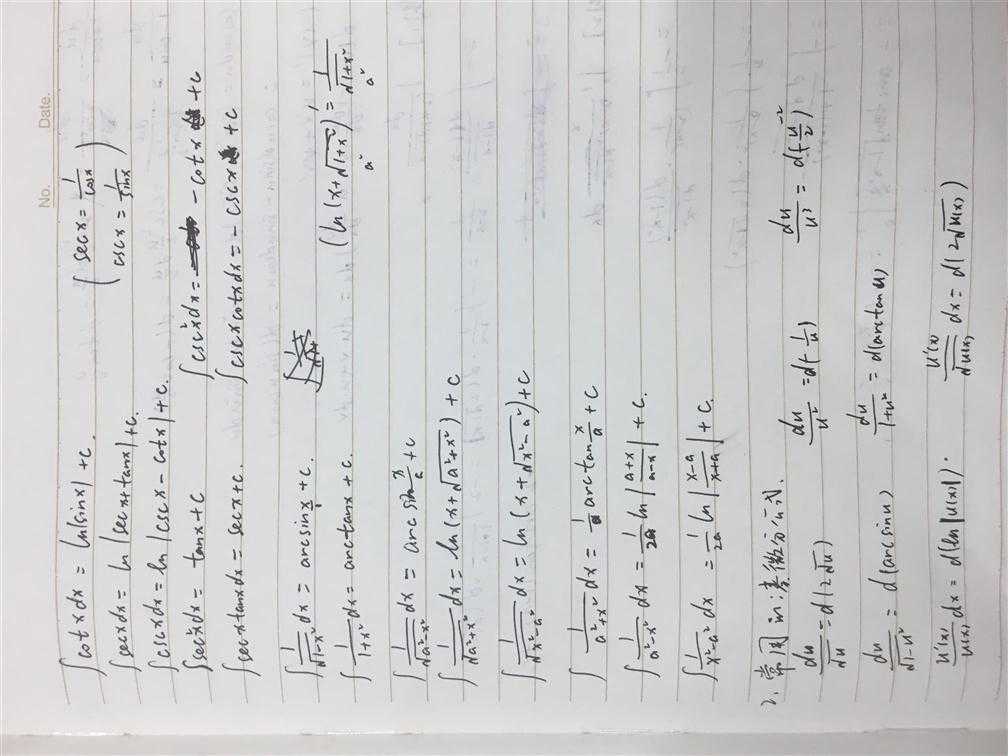 No.
Date.
∫cotxdx = ln|sinx|+c.
(secx = 1/cosx
cscx = 1/sinx)
∫secxdx = ln|secx+tanx|+c.
∫cscxdx = ln|cscx-cotx|+c.
∫sec²xdx = tanx+c
∫csc²xdx = -cotx+c
∫secxtanxdx = secx+c.
∫cscxcotxdx = -cscx+c
∫1/√(1-x²) dx = arcsinx+c.
∫1/(1+x²) dx = arctanx+c.
(ln(x+√(1+x²)))' = 1/√(1+x²)
a² a²
∫1/√(a²-x²) dx = arcsin x/a +c
∫1/√(a²+x²) dx = ln(x+√(a²+x²))+c
∫1/√(x²-a²) dx = ln(x+√(x²-a²))+c
∫1/(a²+x²) dx = 1/a arctan x/a +c
∫1/(a²-x²) dx = 1/2a ln|(a+x)/(a-x)|+c.
∫1/(x²-a²) dx = 1/2a ln|(x-a)/(x+a)|+c.
2. 常用in:凑微分公式.
du/√u = d(2√u)
du/u² = d(-1/u)
du/u³ = d(-u⁻²/2)
du/√(1-u²) = d(arcsinu)
du/(1+u²) = d(arctanu)
u'(x)/u(x) dx = d(ln|u(x)|).
u'(x)/√u(x) dx = d(2√u(x))